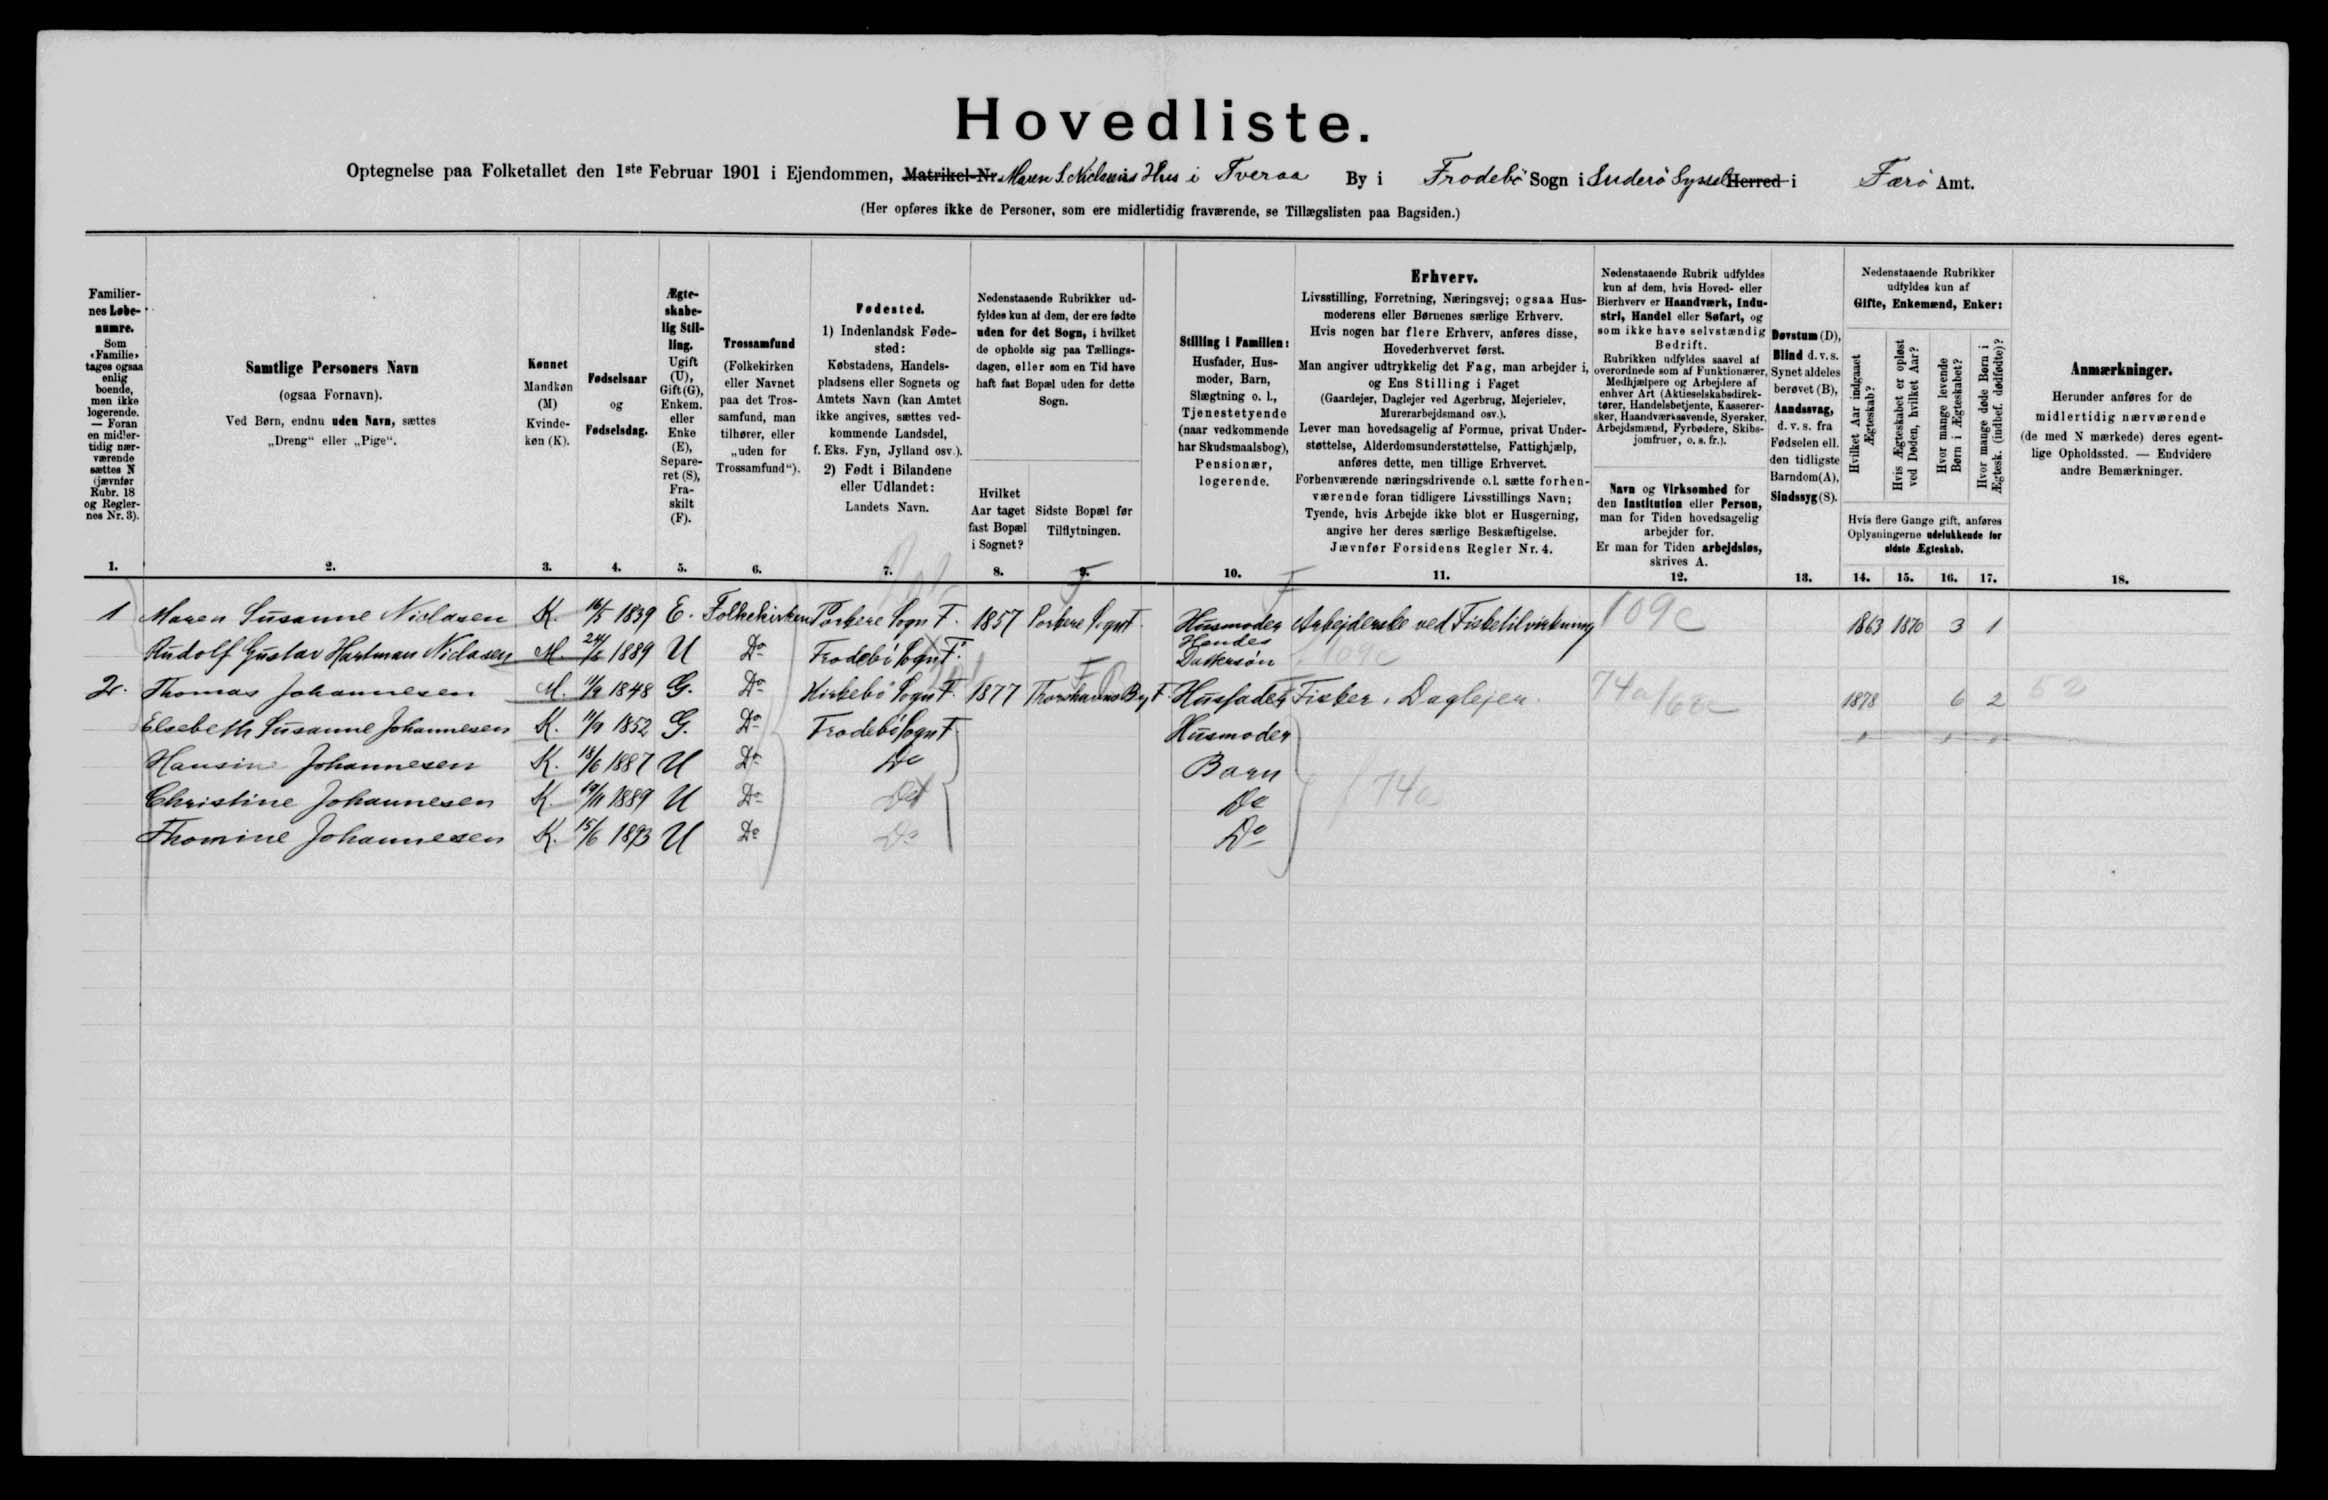 Hovedliste.
Optegnelse paa Folketallet den 1ste Februar 1901 i Ejendommen, Matrikel-Nr. Maren S. Niclasens Hus i Tveraa By i Frodebø Sogn i Suderø Syssel Herred i Færø Amt.
(Her opføres ikke de Personer, som ere midlertidig fraværende, se Tillægslisten paa Bagsiden.)
Familiernes Løbenumre.
Som «Familie» tages ogsaa enlig boende, men ikke logerende. — Foran en midlertidig nærværende sættes N (jævnfør Rubr. 18 og Reglernes Nr. 3).
1.
Samtlige Personers Navn
(ogsaa Fornavn).
Ved Børn, endnu uden Navn, sættes
„Dreng“ eller „Pige“.
2.
Kønnet
Mandkøn (M) Kvindekøn (K).
3.
Fødselsaar
og
Fødselsdag.
4.
Ægteskabelig Stilling.
Ugift (U), Gift (G), Enkem. eller Enke (E), Separeret (S), Fraskilt (F).
5.
Trossamfund
(Folkekirken eller Navnet paa det Trossamfund, man tilhører, eller „uden for Trossamfund“).
6.
Fødested.
1) Indenlandsk Fødested:
Købstadens, Handelspladsens eller Sognets og Amtets Navn (kan Amtet ikke angives, sættes vedkommende Landsdel, f. Eks. Fyn, Jylland osv.).
2) Født i Bilandene eller Udlandet:
Landets Navn.
7.
Nedenstaaende Rubrikker udfyldes kun af dem, der ere fødte uden for det Sogn, i hvilket de opholde sig paa Tællingsdagen, eller som en Tid have haft fast Bopæl uden for dette Sogn.
Hvilket Aar taget fast Bopæl i Sognet?
8.
Sidste Bopæl før Tilflytningen.
9.
Stilling i Familien:
Husfader, Husmoder, Barn, Slægtning o. l., Tjenestetyende (naar vedkommende har Skudsmaalsbog), Pensionær, logerende.
10.
Erhverv.
Livsstilling, Forretning, Næringsvej; ogsaa Husmoderens eller Børnenes særlige Erhverv.
Hvis nogen har flere Erhverv, anføres disse, Hovederhvervet først.
Man angiver udtrykkelig det Fag, man arbejder i, og Ens Stilling i Faget
(Gaardejer, Daglejer ved Agerbrug, Mejerielev, Murerarbejdsmand osv.).
Lever man hovedsagelig af Formue, privat Understøttelse, Alderdomsunderstøttelse, Fattighjælp, anføres dette, men tillige Erhvervet.
Forhenværende næringsdrivende o.l. sætte forhenværende foran tidligere Livsstillings Navn; Tyende, hvis Arbejde ikke blot er Husgerning, angive her deres særlige Beskæftigelse.
Jævnfør Forsidens Regler Nr. 4.
11.
Nedenstaaende Rubrik udfyldes kun af dem, hvis Hoved- eller Bierhverv er Haandværk, Industri, Handel eller Søfart, og som ikke have selvstændig Bedrift.
Rubrikken udfyldes saavel af overordnede som af Funktionærer, Medhjælpere og Arbejdere af enhver Art (Aktieselskabsdirektører, Handelsbetjente, Kasserersker, Haandværkssvende, Syersker, Arbejdsmænd, Fyrbødere, Skibsjomfruer, o. s. fr.).
Navn og Virksomhed for den Institution eller Person, man for Tiden hovedsagelig arbejder for.
Er man for Tiden arbejdsløs, skrives A.
12.
Døvstum (D), Blind d. v. s. Synet aldeles berøvet (B), Aandssvag, d. v. s. fra Fødselen ell. den tidligste Barndom (A), Sindssyg (S).
13.
Nedenstaaende Rubrikker udfyldes kun af
Gifte, Enkemænd, Enker:
Hvilket Aar indgaaet Ægteskab?
Hvis Ægteskabet er opløst ved Døden, hvilket Aar?
Hvor mange levende Børn i Ægteskabet?
Hvor mange døde Børn i Ægtesk. (indbef. dødfødte)?
Hvis flere Gange gift, anføres Oplysningerne udelukkende for sidste Ægteskab.
14. 15. 16. 17.
Anmærkninger.
Herunder anføres for de midlertidig nærværende (de med N mærkede) deres egentlige Opholdssted. — Endvidere andre Bemærkninger.
18.
1 Maren Susanne Niclasen K. 16/5 1839 E. Folkekirken Porkere Sogn F. 1857 Porkere Sogn F. Husmoder Arbejderske ved Fisketilvirkning 109c 1863 1870 3 1
Rudolf Gustav Hartman Niclasen M. 24/6 1889 U Do Frodebö Sogn F. Hendes Dattersøn 109c
2. Thomas Johannesen M. 11/9 1848 G. Do Kirkebö Sogn F. 1877 Thorshavns By F. Husfader Fisker, Daglejer. 74a/68c 1878 6 2 52
Elsebeth Susanne Johannesen K. 11/9 1852 G. Do Frodebö Sogn F. Husmoder
Hansine Johannesen K. 18/6 1887 U Do Do Barn
Christine Johannesen K. 19/11 1889 U Do Do Do 74a
Thomine Johannesen K. 15/6 1893 U Do Do Do